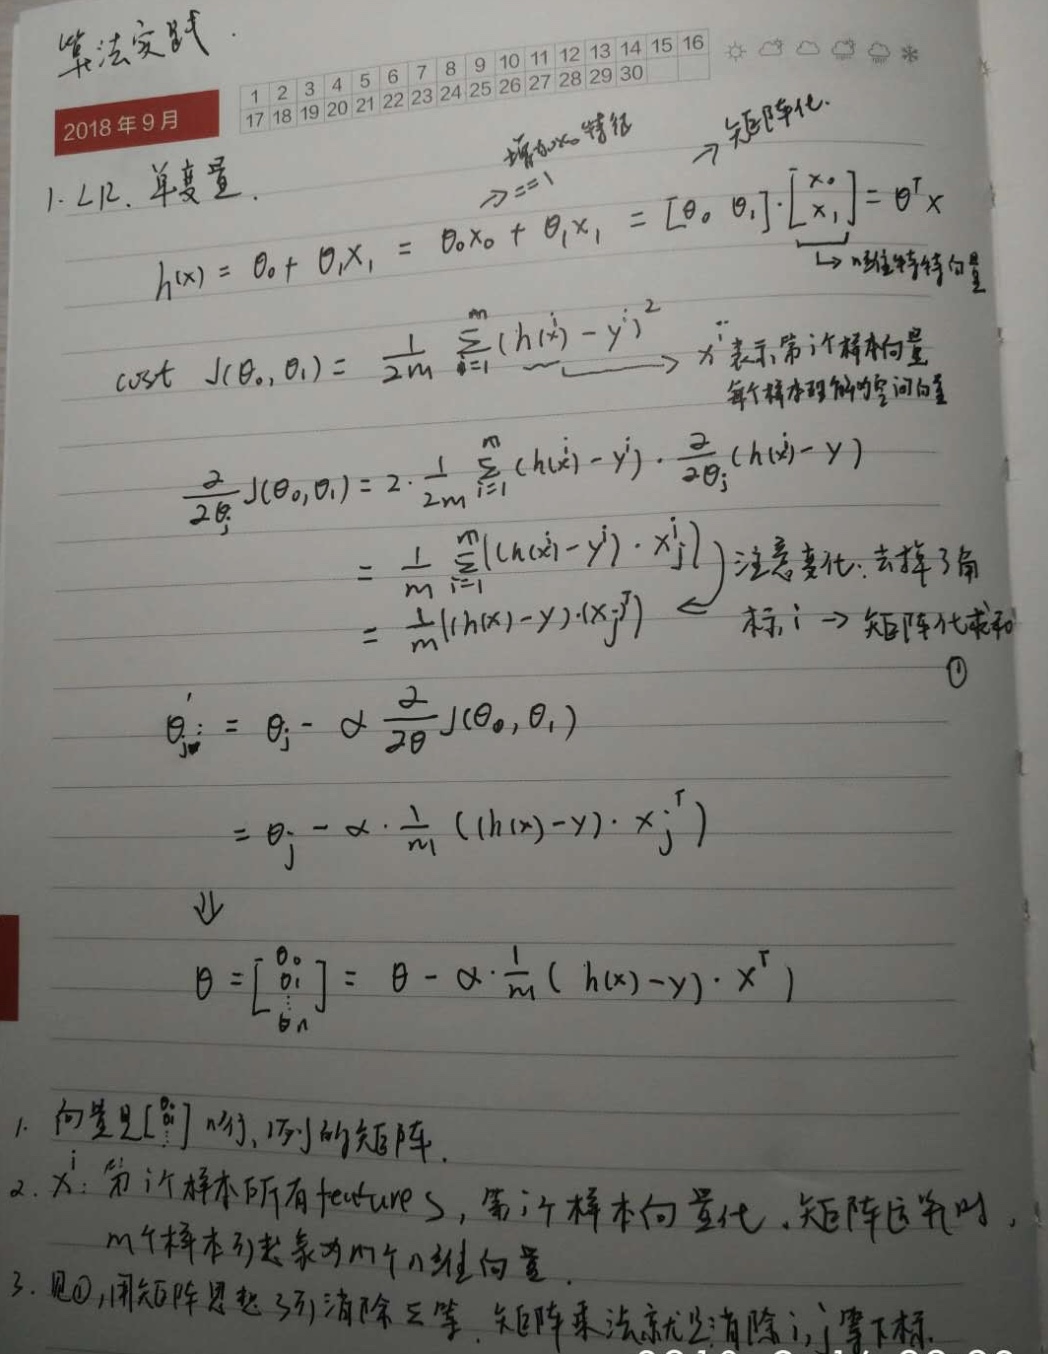 算法实践.
1 2 3 4 5 6 7 8 9 10 11 12 13 14 15 16
2018年9月
17 18 19 20 21 22 23 24 25 26 27 28 29 30
1. LR. 单变量.
增加x₀特征
==1
→ 矩阵化.
h(x) = θ₀ + θ₁x₁ = θ₀x₀ + θ₁x₁ = [θ₀ θ₁]·[x₀ x₁] = θᵀx
↳ n维特征向量
cost J(θ₀, θ₁) = 1/2m Σᵢ₌₁ᵐ (h(xⁱ) − yⁱ)² → xⁱ 表示第i个样本向量
每个样本理解为空间向量
∂/∂θⱼ J(θ₀, θ₁) = 2·1/2m Σᵢ₌₁ᵐ (h(xⁱ) − yⁱ)·∂/∂θⱼ (h(xⁱ) − y)
= 1/m Σᵢ₌₁ᵐ ((h(xⁱ) − yⁱ)·xⱼⁱ) 注意变化: 去掉了角
= 1/m ((h(x) − y)·(xⱼᵀ) ← 标i → 矩阵化求和
①
θⱼ' = θⱼ − α ∂/∂θ J(θ₀, θ₁)
= θⱼ − α·1/m ((h(x) − y)·xⱼᵀ)
⇓
θ = [θ₀ θ₁ ⋮ θn] = θ − α·1/m (h(x) − y)·xᵀ)
1. 向量是[θ₀ θ₁ ⋮] n行, 1列的矩阵.
2. xⁱ: 第i个样本所有features, 第i个样本向量化. 矩阵运算时,
m个样本引起象为m个n维向量.
3. 见①, 用矩阵思想可消除Σ等. 矩阵乘法就是消除i, j等下标.